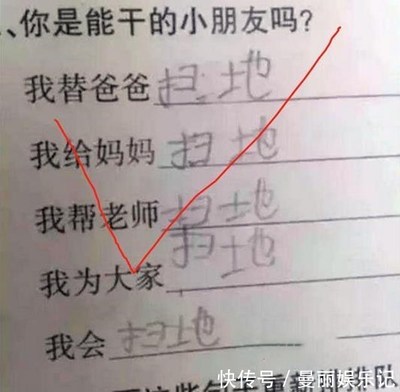 、你是能干的小朋友吗?
我替爸爸扫地
我给妈妈扫地
我帮老师扫地
我为大家扫地
我会扫地
快传号/曼丽娱乐记